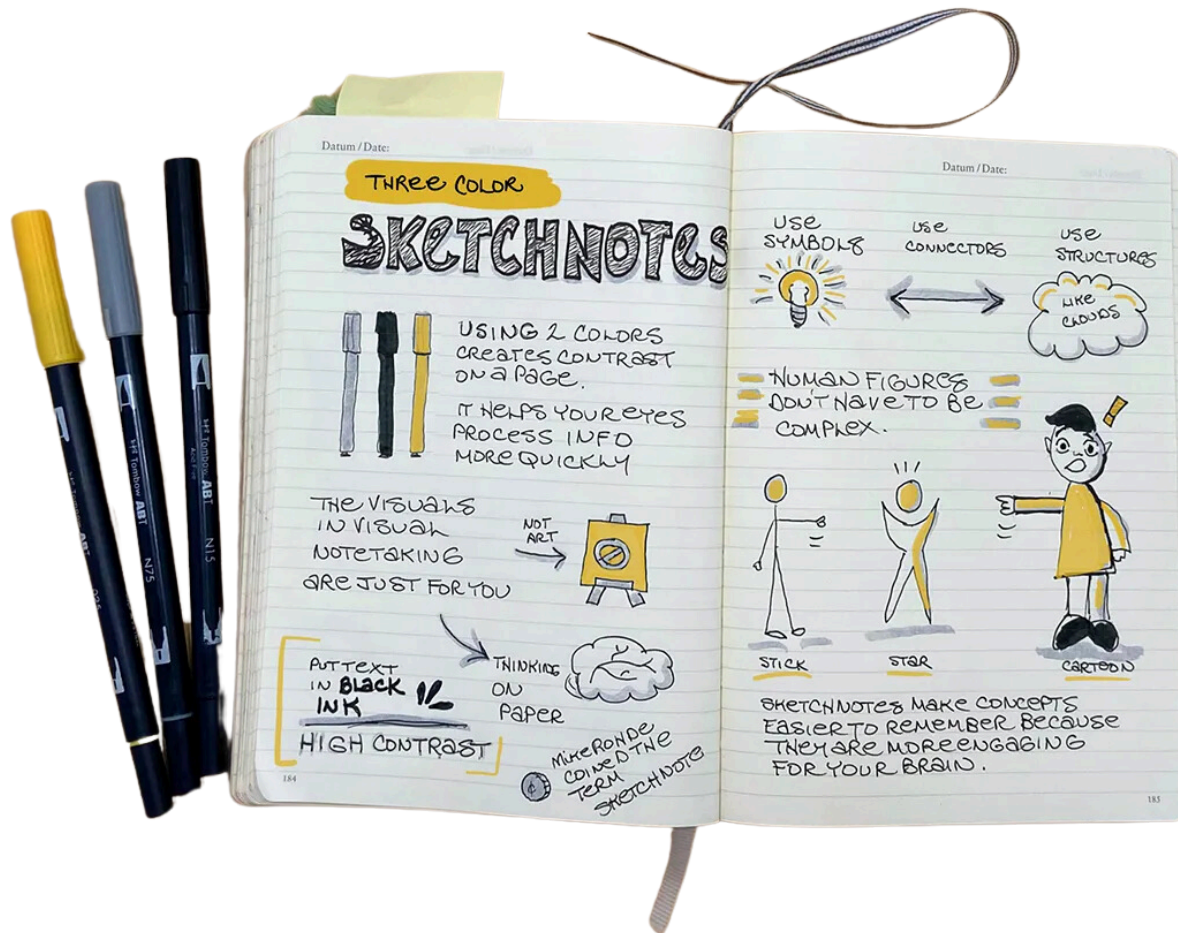 Datum / Date:
THREE COLOR
SKETCHNOTES
USING 2 COLORS
CREATES CONTRAST
ON A PAGE.
IT HELPS YOUR EYES
PROCESS INFO
MORE QUICKLY
THE VISUALS
IN VISUAL
NOTETAKING
ARE JUST FOR YOU
NOT
ART
THINKING
ON
PAPER
PUT TEXT
IN BLACK
INK
HIGH CONTRAST
¢
MIKE RONDE
COINED THE
TERM
SKETCHNOTE
184
Datum / Date:
USE
SYMBOLS
USE
CONNECTORS
USE
STRUCTURES
LIKE
CLOUDS
HUMAN FIGURES
DON'T HAVE TO BE
COMPLEX.
!
STICK
STAR
CARTOON
SKETCHNOTES MAKE CONCEPTS
EASIER TO REMEMBER BECAUSE
THEY ARE MORE ENGAGING
FOR YOUR BRAIN.
185
Tombow ABT
N75
Tombow ABT
N15